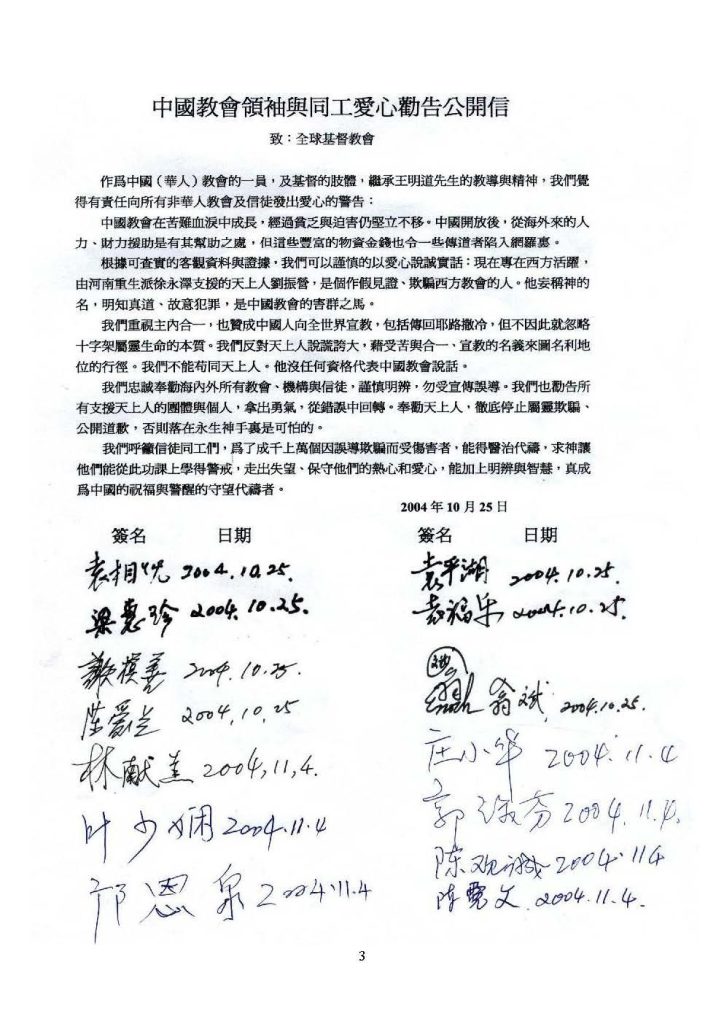 中國教會領袖與同工愛心勸告公開信
致：全球基督教會
作爲中國（華人）教會的一員，及基督的肢體，繼承王明道先生的教導與精神，我們覺
得有責任向所有非華人教會及信徒發出愛心的警告：
中國教會在苦難血淚中成長，經過貧乏與迫害仍堅立不移。中國開放後，從海外來的人
力、財力援助是有其幫助之處，但這些豐富的物資金錢也令一些傳道者陷入網羅裏。
根據可查實的客觀資料與證據，我們可以謹慎的以愛心說誠實話：現在專在西方活躍，
由河南重生派徐永澤支援的天上人劉振營，是個作假見證、欺騙西方教會的人。他妄稱神的
名，明知真道、故意犯罪，是中國教會的害群之馬。
我們重視主內合一，也贊成中國人向全世界宣教，包括傳回耶路撒冷，但不因此就忽略
十字架屬靈生命的本質。我們反對天上人說謊誇大，藉受苦與合一、宣教的名義來圖名利地
位的行徑。我們不能苟同天上人。他沒任何資格代表中國教會說話。
我們忠誠奉勸海內外所有教會、機構與信徒，謹慎明辨，勿受宣傳誤導。我們也勸告所
有支援天上人的團體與個人，拿出勇氣，從錯誤中回轉。奉勸天上人，徹底停止屬靈欺騙、
公開道歉，否則落在永生神手裏是可怕的。
我們呼籲信徒同工們，爲了成千上萬個因誤導欺騙而受傷害者，能得醫治代禱，求神讓
他們能從此功課上學得警戒，走出失望、保守他們的熱心和愛心，能加上明辨與智慧，真成
爲中國的祝福與警醒的守望代禱者。
2004 年 10 月 25 日
簽名 日期 簽名 日期
袁相忱 2004.10.25. 袁平湖 2004.10.25.
梁惠珍 2004.10.25. 袁福乐 2004.10.25.
謝模善 2004.10.25.
翁斌 2004.10.25.
2004.10.25
林献羔 2004,11,4. 庄小华 2004.11.4
叶少娴 2004.11.4 郭 芬 2004.11.4.
邝恩泉 2004.11.4 陈 2004.11.4
陈霓文 2004.11.4.
3